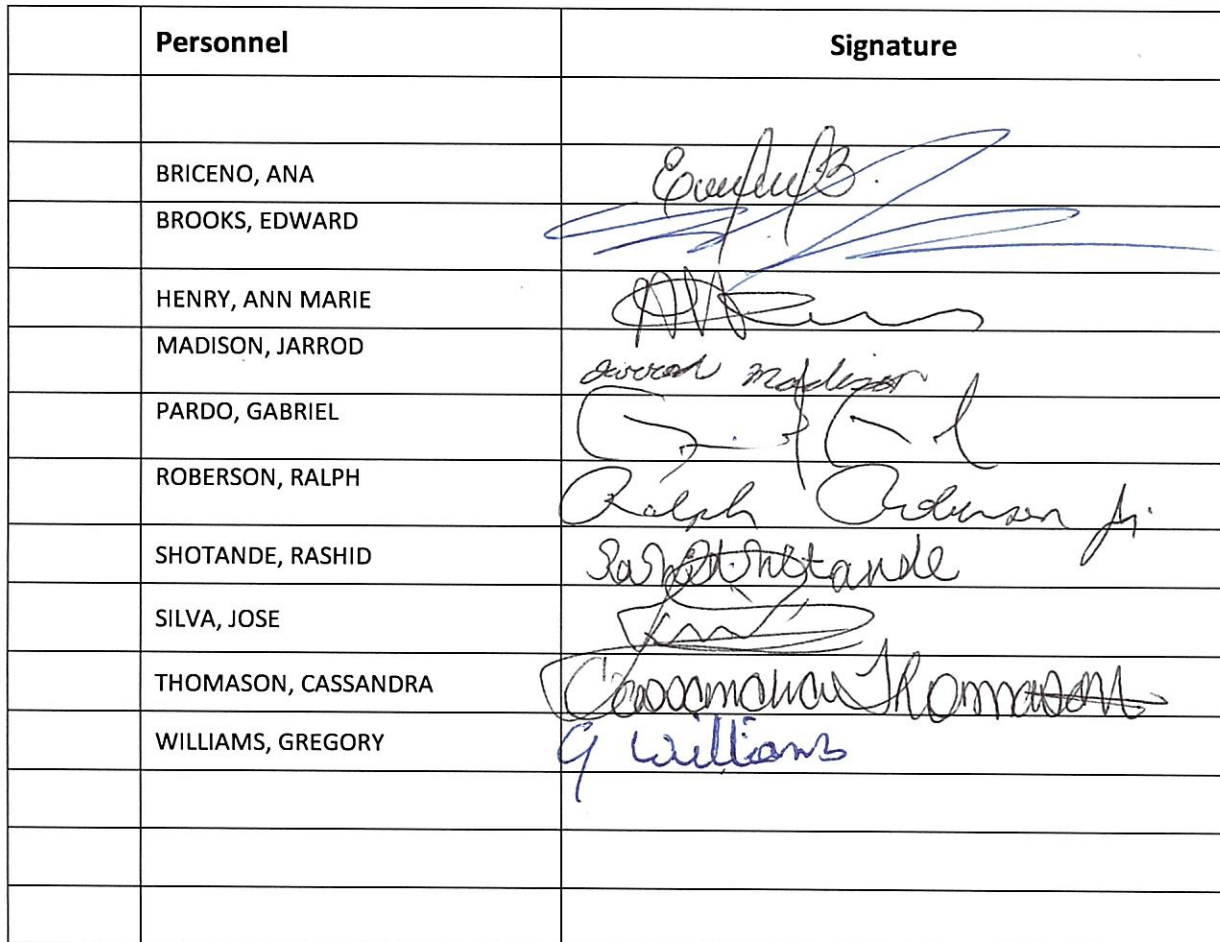 Personnel Signature
BRICENO, ANA
BROOKS, EDWARD
HENRY, ANN MARIE
MADISON, JARROD Jarrod Madison
PARDO, GABRIEL
ROBERSON, RALPH Ralph Roberson Jr.
SHOTANDE, RASHID Rashid Shotande
SILVA, JOSE
THOMASON, CASSANDRA Cassandra Thomason
WILLIAMS, GREGORY G Williams